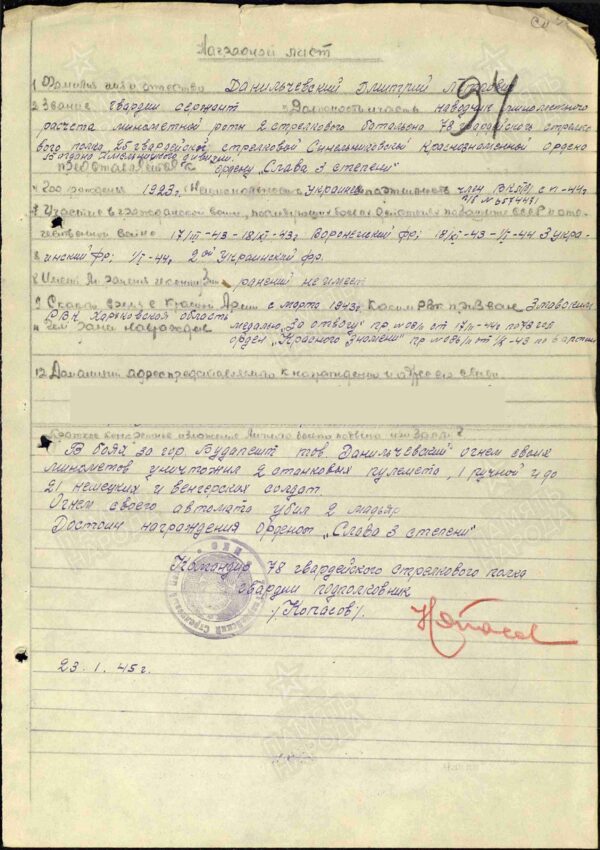 Наградной лист
94
1 Фамилия имя и отчество Данильчевский Дмитрий
2 Звание гвардии сержант Должность и часть наводчик минометного
расчета минометной роты 2 стрелкового батальона 78 гвардейского стрелко-
вого полка, 25 гвардейской стрелковой Синельниковской Краснознаменной ордена
Богдана Хмельницкого дивизии.
Представляется к ордену „Слава 3 степени"
4 Год рождения 1923г. Национальность Украинец партийность член ВКП(б) с
7 Участие в гражданской войне, последующих боевых действиях по защите СССР и оте-
чественной войне 17/III-43-18/XI-43г Воронежский фр; 18/XI-43-1/VI-44 3 укра-
инский фр; 2ой Украинский фр.
8 Имеет ли ранения ранений не имеет
9 С какого времени в Красной Армии с марта 1943г. Каким РВК призван Змиевским
РВК Харьковской область
11 Чем ранее награжден медалью „За отвагу" пр
орден „Красного Знамени" пр
12 Домашний адрес представляемого к награждению и адрес его семьи
Краткое конкретное изложение личного боевого подвига или заслуг
В боях за гор. Будапешт тов. Данильчевский огнем своих
минометов уничтожил 2 станковых пулемета, 1 ручной и до
21 немецких и венгерских солдат.
Огнем своего автомата убил 2 мадьяр
Достоин награждения орденом „Слава 3 степени"
Командир 78 гвардейского стрелкового полка
гвардии подполковник
/Копасов/.
23.1.45г.
ПАМЯТЬ
НАРОДА